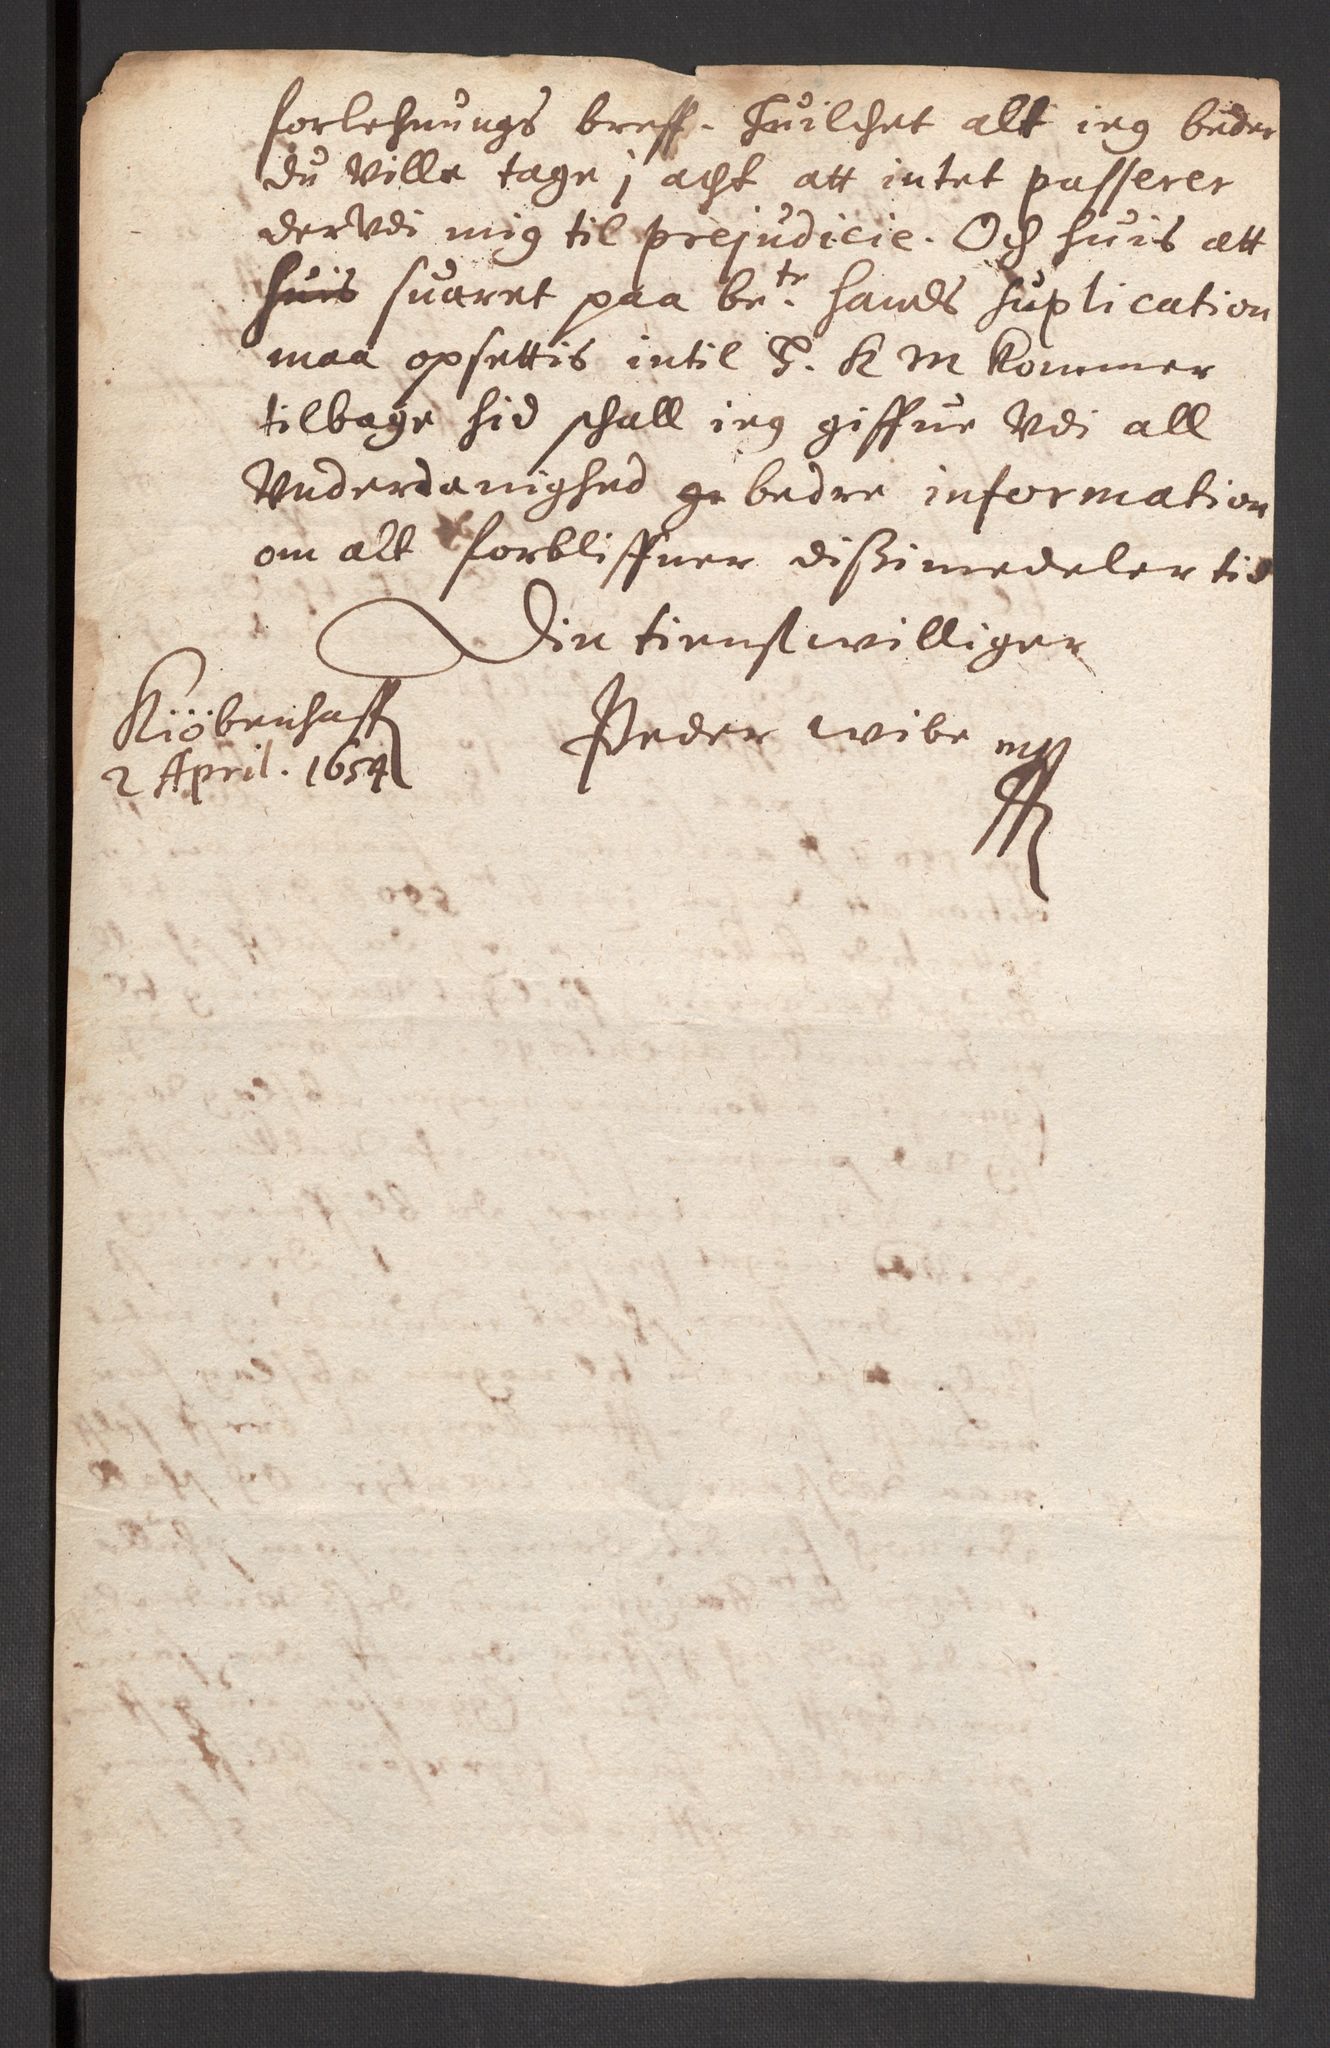 forlehnungs breff. Huilchet alt ieg beder
du Ville tage j acht att intet passerer
der Vdi mig til prejudicie. Och huis att
huis suaret paa be.te hands suplication
maa opsettis intil H. K M kommer
tilbage hid schall ieg giffue Vdi all
Vnderdanighed ge bedre information
om alt forbliffuer dissimedeler tid
Din tienstwilliger
Kiöbenhaff
2 April. 1654
Peder Wibe mp